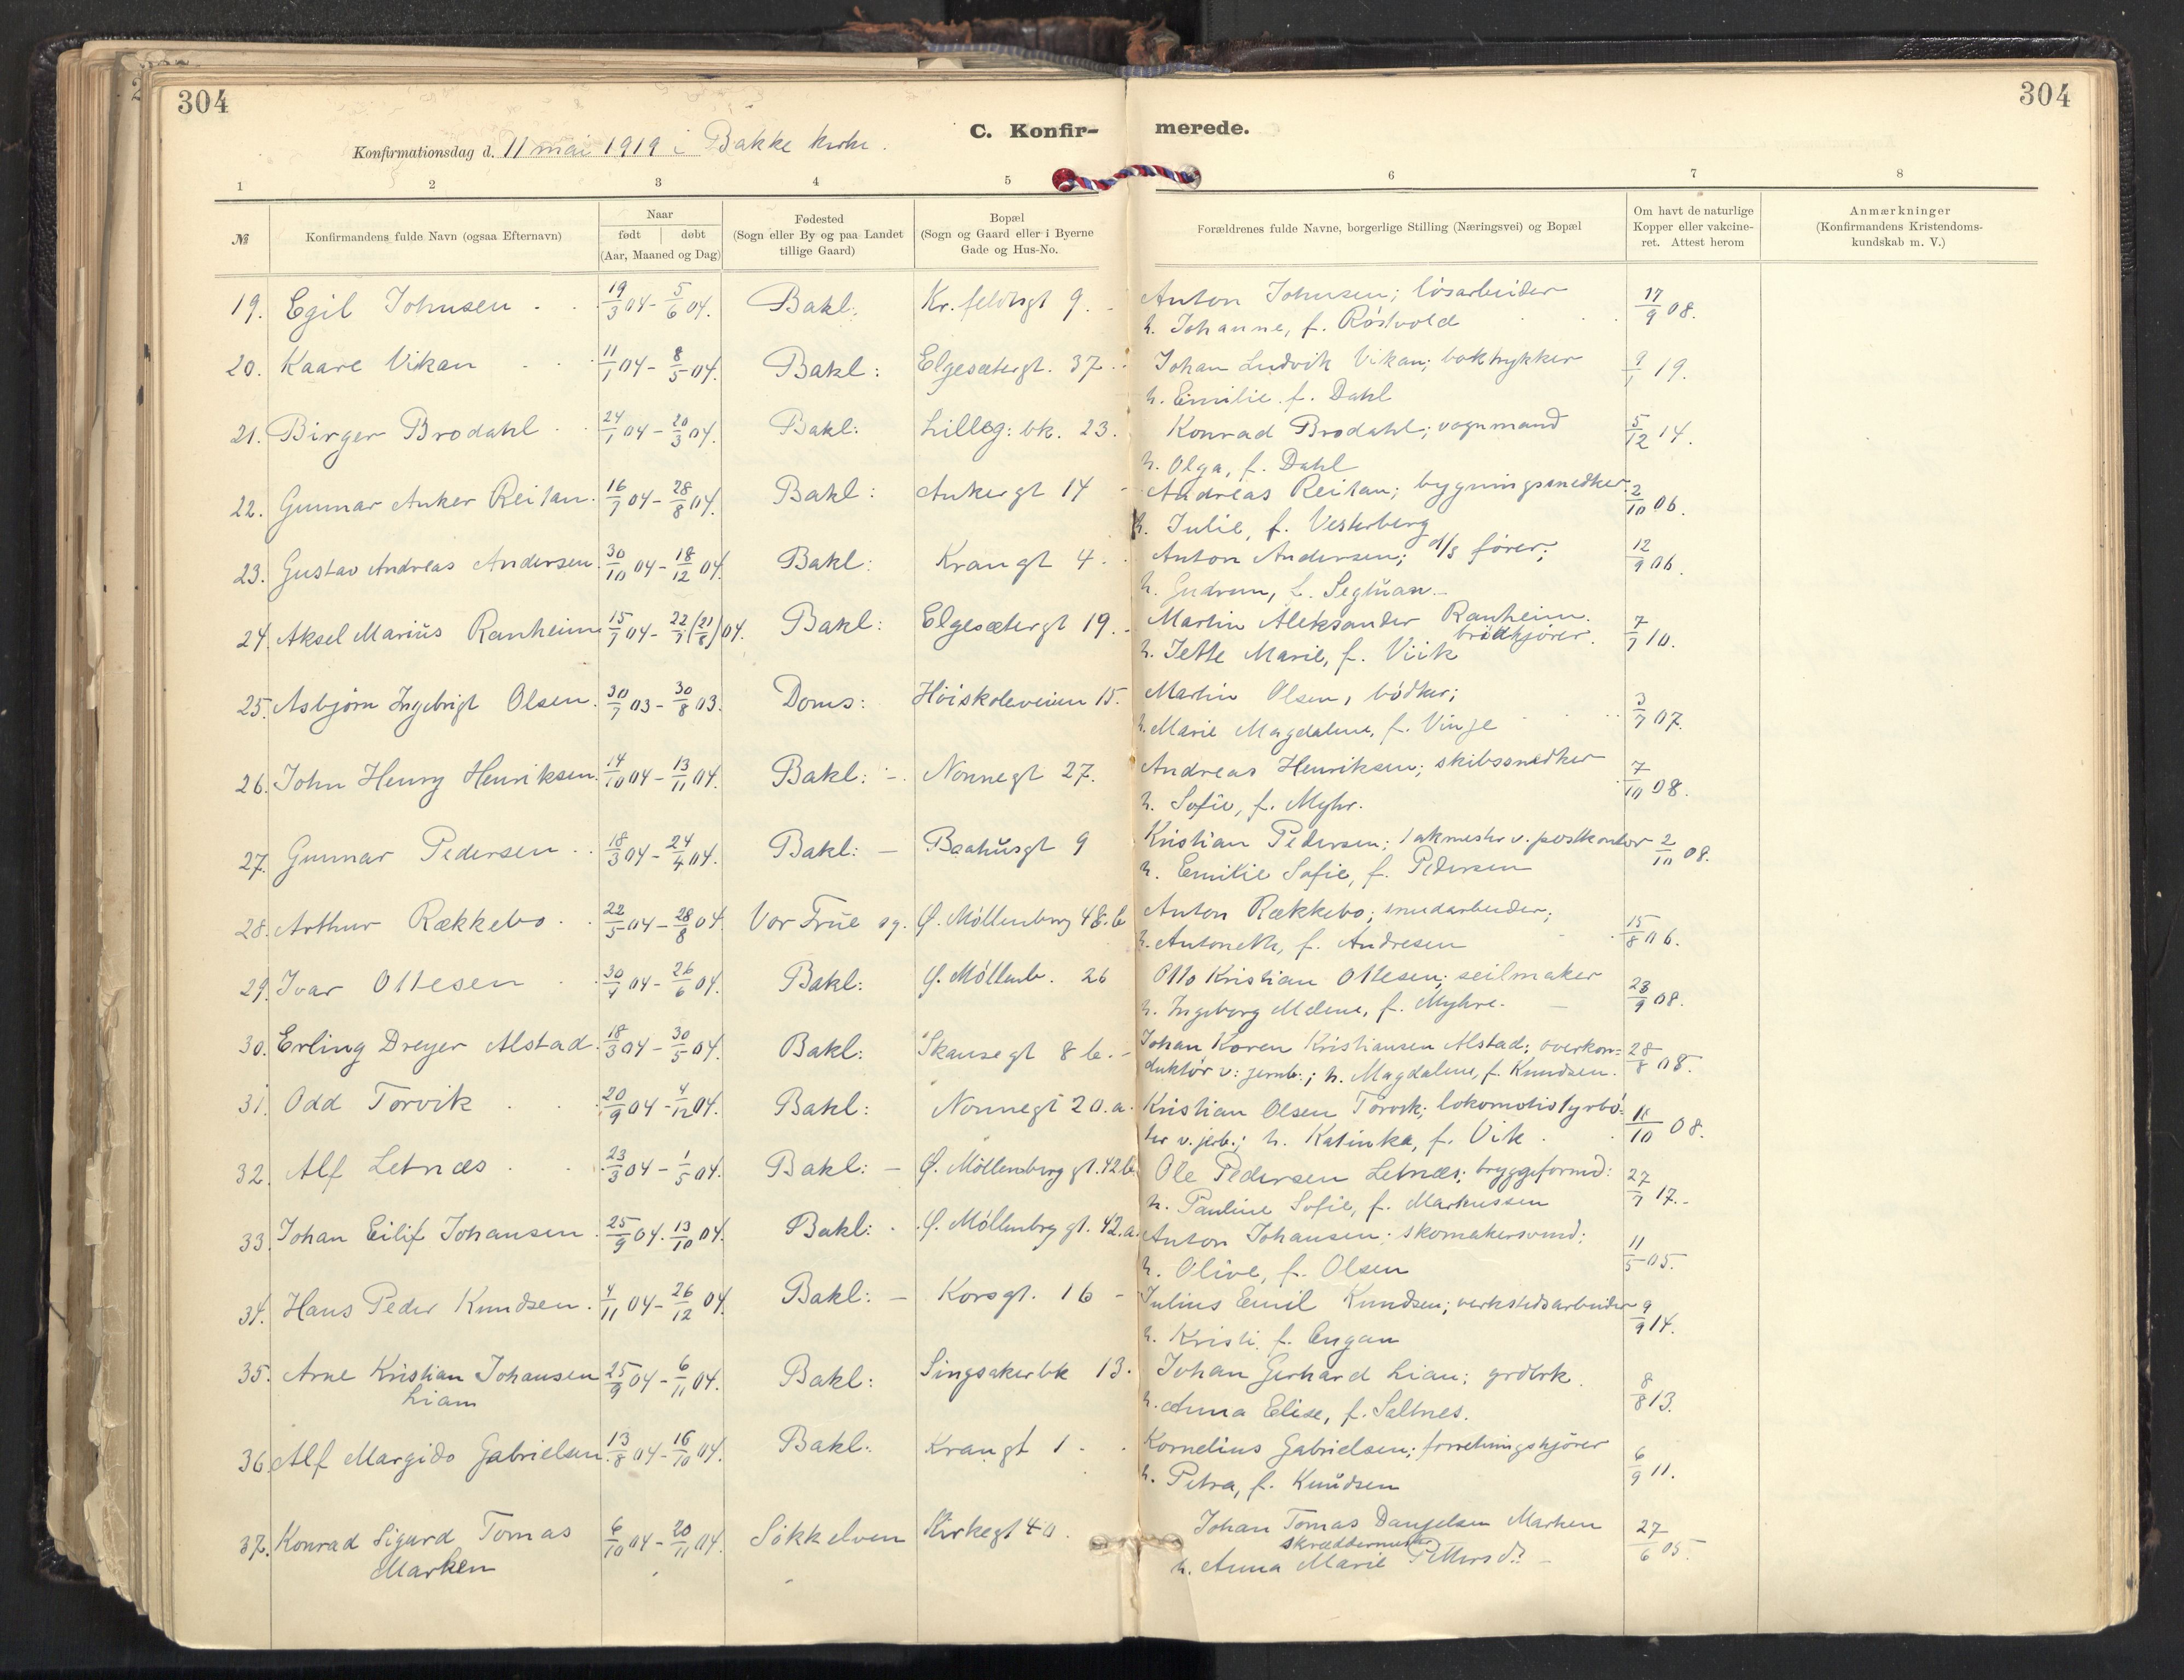 304
304
C. Konfir-
merede.
Konfirmationsdag d. 11 mai 1919 i Bakke kirke.
1 2 3 4 5 6 7 8
№ Konfirmandens fulde Navn (ogsaa Efternavn) Naar født | døbt (Aar, Maaned og Dag) Fødested (Sogn eller By og paa Landet tillige Gaard) Bopæl (Sogn og Gaard eller i Byerne Gade og Hus-No. Forældrenes fulde Navne, borgerlige Stilling (Næringsvei) og Bopæl Om havt de naturlige Kopper eller vakcineret. Attest herom Anmærkninger (Konfirmandens Kristendomskundskab m. V.)
19. Egil Johnsen 19/3 04 - 5/6 04. Bakl: Kr. feldtsgt 9. Anton Johnsen; løsarbeider 17/9 08.
h. Johanne, f. Røstvold
20. Kaare Vikan 11/1 04 - 8/5 04. Bakl: Elgesætergt. 37. Johan Ludvik Vikan; boktrykker 9/1 19.
h. Emilie f. Dahl
21. Birger Brodahl 24/1 04 - 20/3 04. Bakl: Lilleg: bk. 23. Konrad Brodahl; vognmand 5/12 14.
h. Olga, f. Dahl
22. Gunnar Anker Reitan 16/7 04 - 28/8 04. Bakl: Ankergt 14 Andreas Reitan; bygningssnedker 2/10 06.
h. Julie, f. Vesterberg
23. Gustav Andreas Andersen 30/10 04 - 18/12 04. Bakl: Krangt 4. Anton Andersen; d/s fører; 12/9 06.
h. Gudrun, f. Segtnan
24. Aksel Marius Ranheim 15/7 04 - 22/7 (21/8) 04. Bakl: Elgesætergt 19. Martin Aleksander Ranheim. 7/7 10.
brødkjører.
h. Jette Marie, f. Viik
25. Asbjørn Ingebrigt Olsen 30/7 03 - 30/8 03. Doms: Høiskoleveien 15. Martin Olsen, bødker; 3/7 07.
h. Marie Magdalene, f. Vinje
26. John Henry Henriksen 14/10 04 - 13/11 04. Bakl: - Nonnegt 27. Andreas Henriksen; skibssnedker 7/10 08.
h. Sofie, f. Myhr.
27. Gunnar Pedersen 18/3 04 - 24/4 04. Bakl: - Baahusgt 9 Kristian Pedersen; pakmester v. postkontor 2/10 08.
h. Emilie Sofie, f. Pedersen
28. Arthur Rækkebo 22/5 04 - 28/8 04. Vor Frue sg. Ø. Møllenberg 48.b Anton Rækkebo; smedarbeider; 15/8 06.
h. Antonette, f. Andresen
29. Ivar Ottesen 30/4 04 - 26/6 04. Bakl: Ø. Møllenb. 26 Otto Kristian Ottesen; seilmaker 23/9 08.
h. Ingeborg Melene, f. Myhre.
30. Erling Dreyer Alstad 18/3 04 - 30/5 04. Bakl: Skansegt 8 b. Johan Koren Kristiansen Alstad; overkon= 28/8 08.
duktør v: jernb.; h. Magdalene, f. Knudsen.
31. Odd Torvik 20/9 04 - 4/12 04. Bakl: Nonnegt 20.a. Kristian Olsen Torvik; lokomotivfyrbø= 18/10 08.
ter v. jerb.; h. Katinka, f. Vik.
32. Alf Letnæs 23/3 04 - 1/5 04. Bakl: - Ø. Møllenberg gt. 42b. Ole Pedersen Letnæs; bryggeformd: 27/7 17.
h. Pauline Sofie, f. Markussen
33. Johan Eilif Johansen 25/9 04. 13/10 04. Bakl: Ø. Møllenbrg gt. 42.a. Anton Johansen; skomakersvend; 11/5 05.
h. Olive, f. Olsen
34. Hans Peder Knudsen 4/11 04 - 26/12 04. Bakl: - Korsgt. 16 - Julius Emil Knudsen; verkstedsarbeider 9/9 14.
h. Kristi f. Engan
35. Arne Kristian Johansen 25/9 04 - 6/11 04. Bakl: Singsakerbk 13. Johan Gerhard Lian; grdbrk. 8/8 13.
Liam
h. Anna Elise, f. Saltnes.
36. Alf Margido Gabrielsen 13/8 04 - 16/10 04. Bakl: Krangt 1. Kornelius Gabrielsen; forretningskjører 6/9 11.
h. Petra, f. Knudsen
37. Konrad Sigurd Tomas 6/10 04 - 20/11 04. Søkkelven Kirkegt 40. Johan Tomas Danjelsen Marken 27/6 05.
Marken
skræddermester
h. Anna Marie Pettersd: